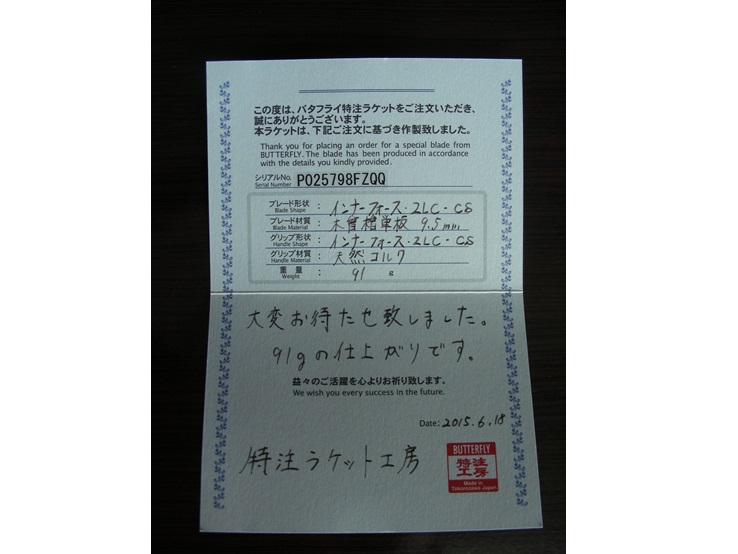 この度は、バタフライ特注ラケットをご注文いただき、
誠にありがとうございます。
本ラケットは、下記ご注文に基づき作製致しました。
Thank you for placing an order for a special blade from
BUTTERFLY. The blade has been produced in accordance
with the details you kindly provided.
シリアルNo. P025798FZQQ
Serial Number
ブレード形状 : インナーフォース・ZLC・CS
Blade Shape
ブレード材質 : 木曽桧単板 9.5mm
Blade Material
グリップ形状 : インナーフォース・ZLC・CS
Handle Shape
グリップ材質 : 天然コルク
Handle Material
重量 : 91 g
Weight
大変お待たせ致しました。
91gの仕上がりです。
益々のご活躍を心よりお祈り致します。
We wish you every success in the future.
Date: 2015.6.18
特注ラケット工房
BUTTERFLY
特注
工房
Made in
Tokorozawa Japan